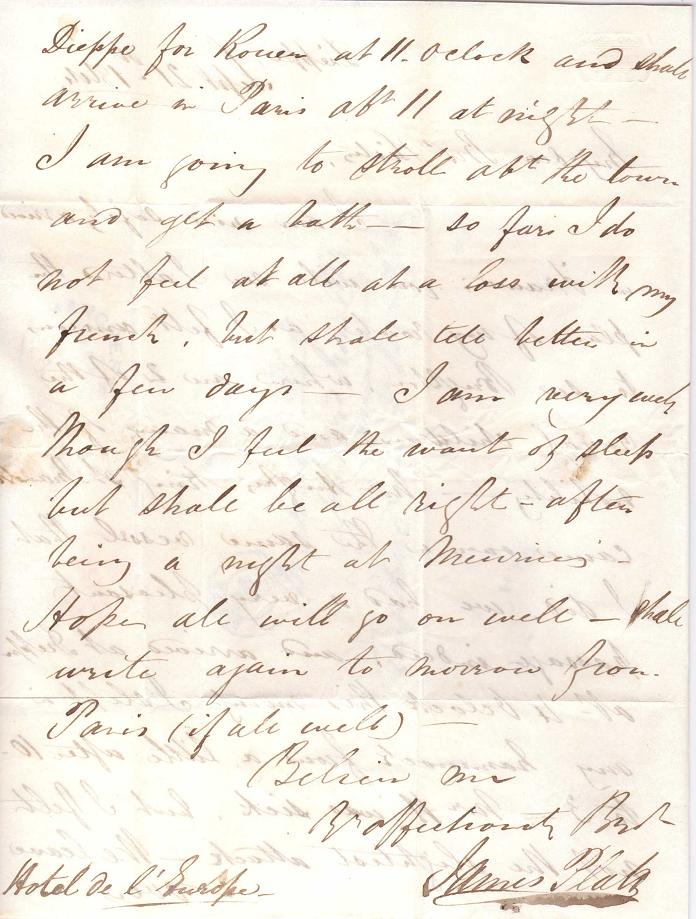 Dieppe for Rouen at 11. Oclock and shall
arrive in Paris abt 11 at night —
I am going to stroll abt the town
and get a bath — so far I do
not feel at all at a loss with my
french, but shall tell better in
a few days — I am very well
though I feel the want of sleep
but shall be all right - after
being a night at Meurices -
Hope all will go on well — shall
write again to morrow from
Paris (if all well) —
Believe me
Yr affectionate Bror
James Platt
Hotel de l'Europe -